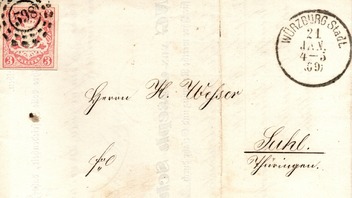 598
3 3
WÜRZBURG Stadt.
21
JAN.
4-5
69
Herrn H. Weßer
frei
Suhl.
Thüringen.